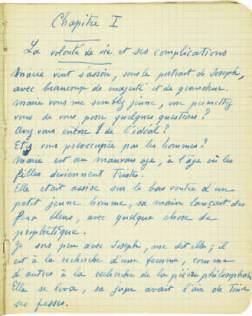 Chapitre I
La volonté de vie et ses complications
Marie vint s'asseoir, sous le portrait de Joseph,
avec beaucoup de majesté et de grandeur.
Marie vous me semblez jeune, me permettez
vous de vous poser quelques questions?
Avez vous entre de l'idéal?
Etes vous préoccupée par les hommes?
Marie est au mauvais age, à l'âge où les
filles deviennent Trustes.
Elle était assise sur le bas ventre d'un
petit jeune homme, sa main lançant des
feux bleus, avec quelque chose de
prophétique.
Je suis peu avec Joseph, me dit elle; il
est à la recherche d'une femme, comme
d'autres à la recherche de la pierre philosophale
Elle se leva, sa jupe avait l'air de
ses fesses.